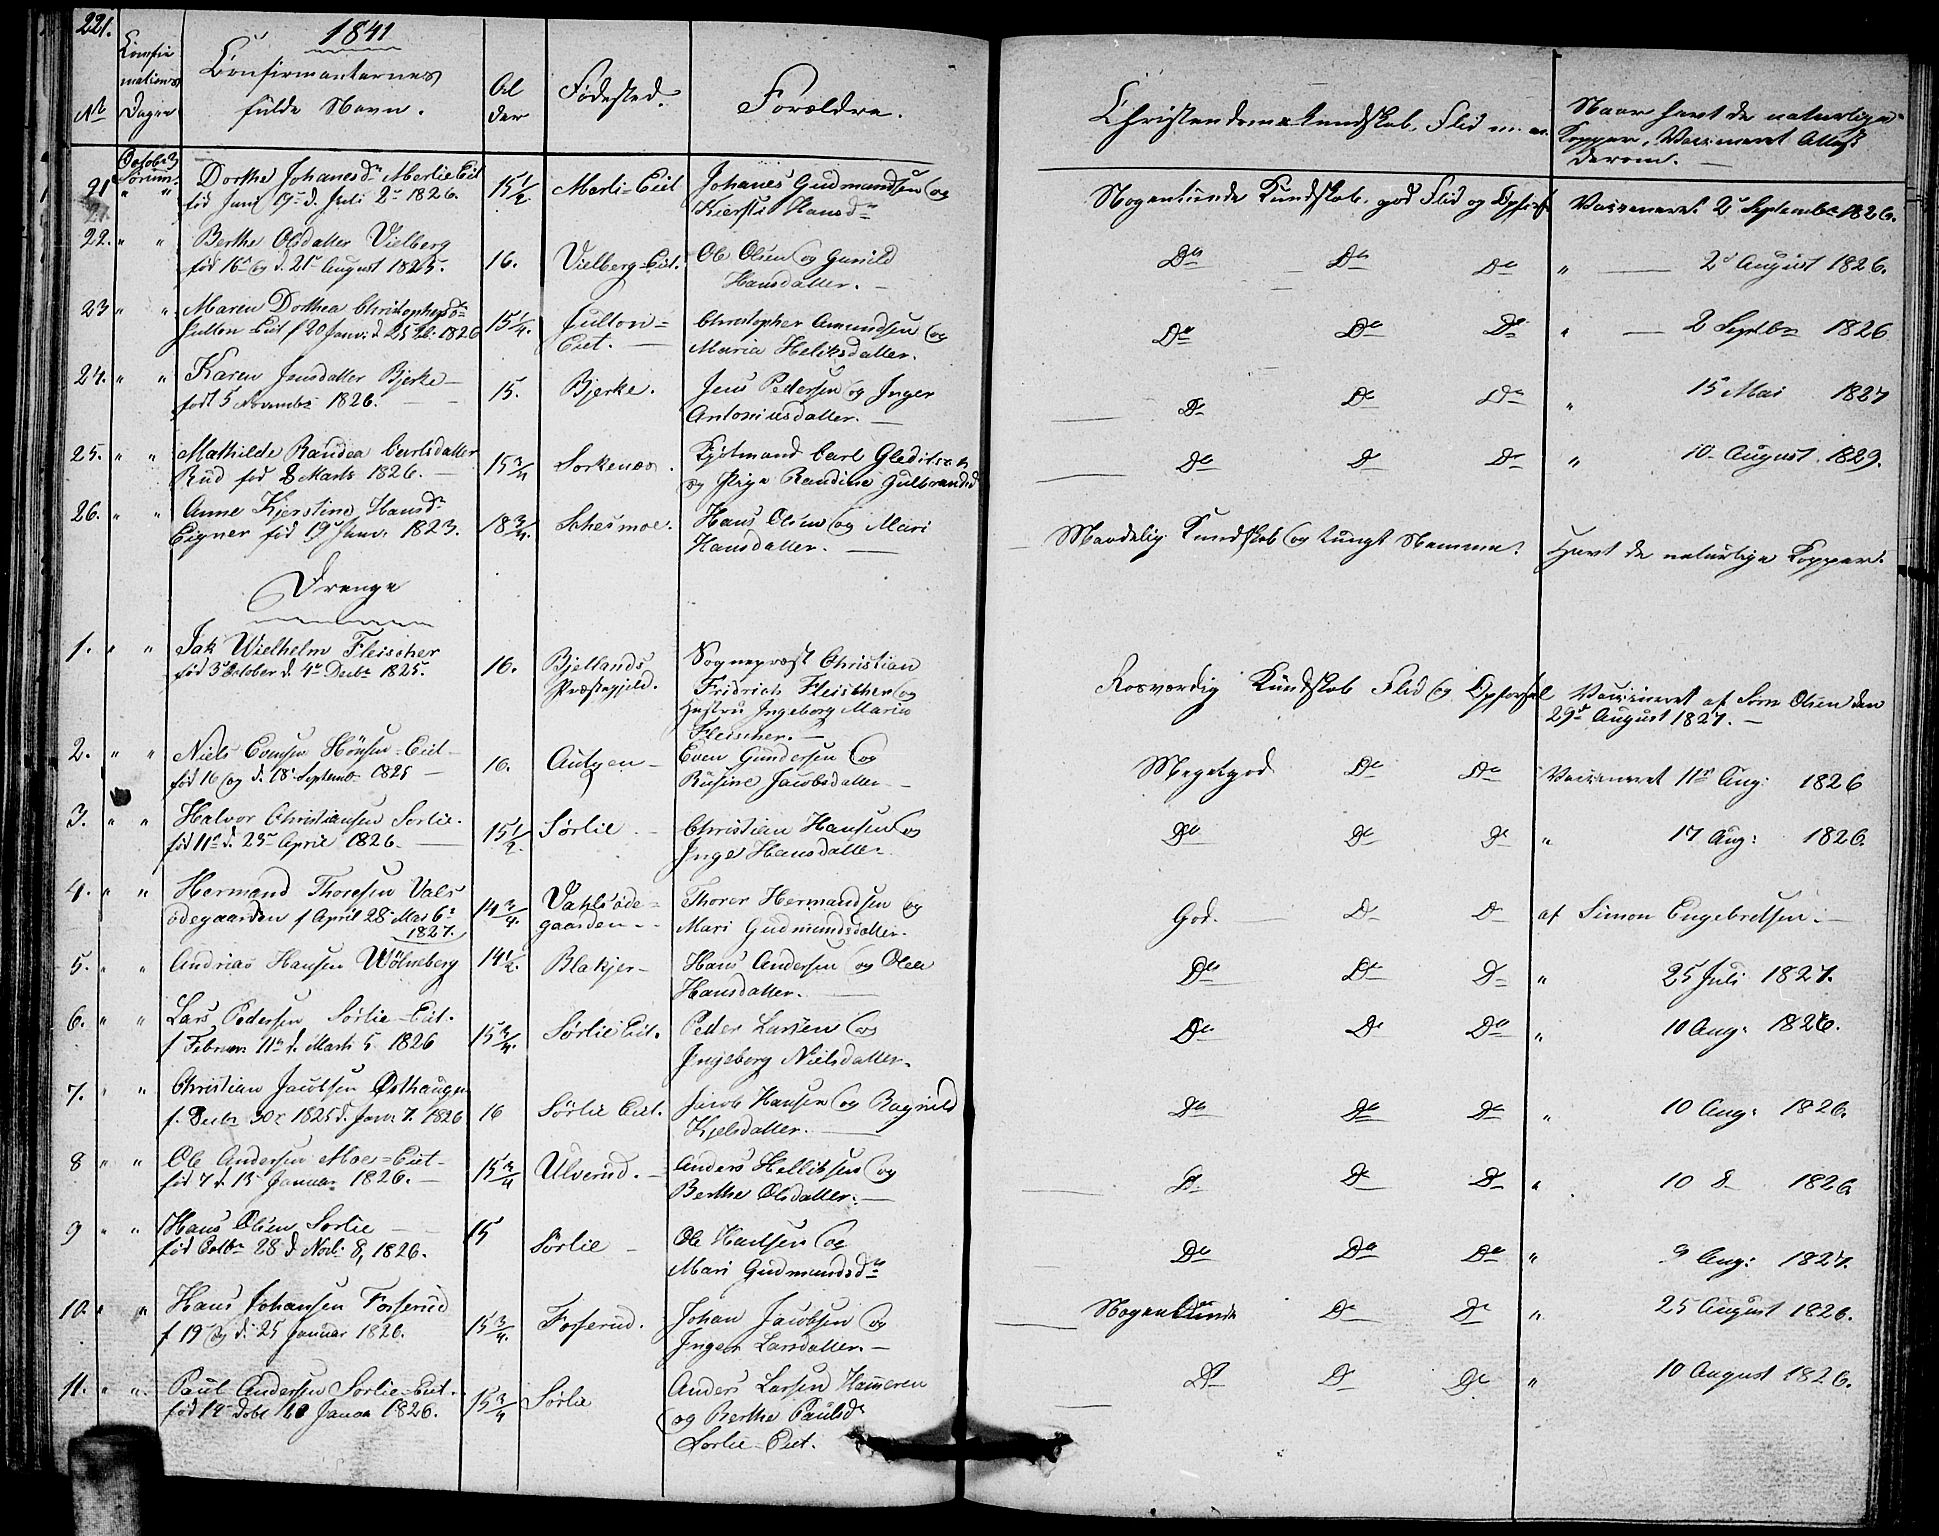 221.
1841
Nr
Confir
mations
Dagen
Confirmanternes
fulde Navn.
Al
der
Fødested.
Forældre.
Christendomskundskab, Flid m. m.
Naar havt de naturlige
Kopper, Vaccineret Attest
derom.
October 3
Sørum
21 " " Dorthe Johanesdr Merlie Eiet 15 1/2 Merli-Eiet Johanes Gudmandsen og Nogenlunde Kundskab, god Flid og Opførsel Vaccineret 2 Septembr 1826.
født Juni 19 d. Juli 2 1826. Kiersti Hansdr
22. " " Berthe Olsdatter Vielberg 16. Vielberg-Eiet. Ole Olsen og Gunild Do Do Do " 2 August 1826.
fød 16 og d. 21 August 1825. Hansdatter.
23 " " Maren Dorthea Christophersdr 15 1/4. Christopher Amundsen og Do Do Do " 2 Septbr 1826
Eiet f 20 Janr: d 25 1826 Eiet. Maria Heliksdatter.
24. " " Karen Jensdatter Bjerke 15. Bjerke. Jens Pedersen og Inger Do Do Do " 15 Mai 1827
født 5 Novembr 1826. Antoniusdatter.
25. " " Mathilde Randea Carlsdatter 15 3/4 Sorkenæs. Carl Do Do Do " 10 August 1829.
Rud fød 8 Marts 1826. og Pige Randine Gulbrandsd
26. " " Anne Kjerstine Hansdr 18 3/4. Schesmoe. Hans Olsen og Mari Maadelig Kundskab og tungt Nemme. Havt de naturlige Kopper.
Eigner fød 19 Janr. 1823. Hansdatter.
Drenge
1. " " Jak Wielhelm Fleischer 16. Bjellands Sogneprest Christian Rosværdig Kundskab Flid og Opførsel Vaccineret af Sørn Olsen den
fød 3 October d. 4 Decbr 1825. Præstegjeld. Fridrich Fleischer og 29de August 1827.
Hustru Ingeborg Maria
Fleischer.
2. " " Niels Evensen Hønsen-Eiet 16. Autgen Even Gundersen og Megetgod Do Do Vaccineret 11 Aug: 1826
fød 16 og d. 18 Septemb 1825 Rusine Jacobsdatter
3. " " Halvor Christiansen Sørlie. 15 1/2 Sørlie Christian Hansen og Do Do Do " 17 Aug: 1826.
fød 11 d. 23 April 1826. Inger Hansdatter
4. " " Hermand Thoresen Vals 14 3/4. Vahlsøde- Thorer Hermandsen og God. Do Do af Simon Engebretsen.
ødegaarden f April 28 Mai 6 gaarden Mari Gudmundsdatter.
1827.
5. " " Andrias Hansen Wølneberg 14 1/2. Blakjer Hans Andersen og Olea Do Do Do " 25 Juli 1827.
Hansdatter.
6. " " Lars Pedersen Sørlie-Eiet. 15 3/4. Sørlie Eiet. Peder Larsen og Do Do Do " 10 Aug: 1826.
f Februar 11 d. Marts 5 1826 Ingeborg Nielsdatter.
7. " " Christian Jacobsen Østhaugen 16 Sørlie Eiet. Jacob Hansen og Ragnild Do Do Do " 10 Aug: 1826.
f. Decbr 30 1825 d. Janr 7. 1826 Kjelsdatter.
8 " " Ole Andersen Moes-Eiet 15 3/4 Ulverud. Anders Helliksen og Do Do Do " 10 D 1826
fød 7 d. 15 Januar 1826. Berthe Olsdatter.
9 " " Hans Olsen Sørlie 15 Sørlie Ole Hansen og Do Do Do " 9 Aug: 1827.
fød Octbr 28 d Novb: 8, 1826. Mari Gudmundsdr
10. " " Hans Johansen Fosserud 15 3/4. Fosserud. Johan Jacobsen og Nogenlunde Do Do " 25 August 1826.
f 19 og d: 25 Januar 1826. Inger Larsdatter.
11. " " Paul Andersen Sørlie-Eiet. 15 3/4 Sørlie Anders Larsen Hameren Do Do Do " 10 August 1826.
fød 1 døbt 10 Januar 1826. og Berthe Paulsdr
Sørlie-Eiet.